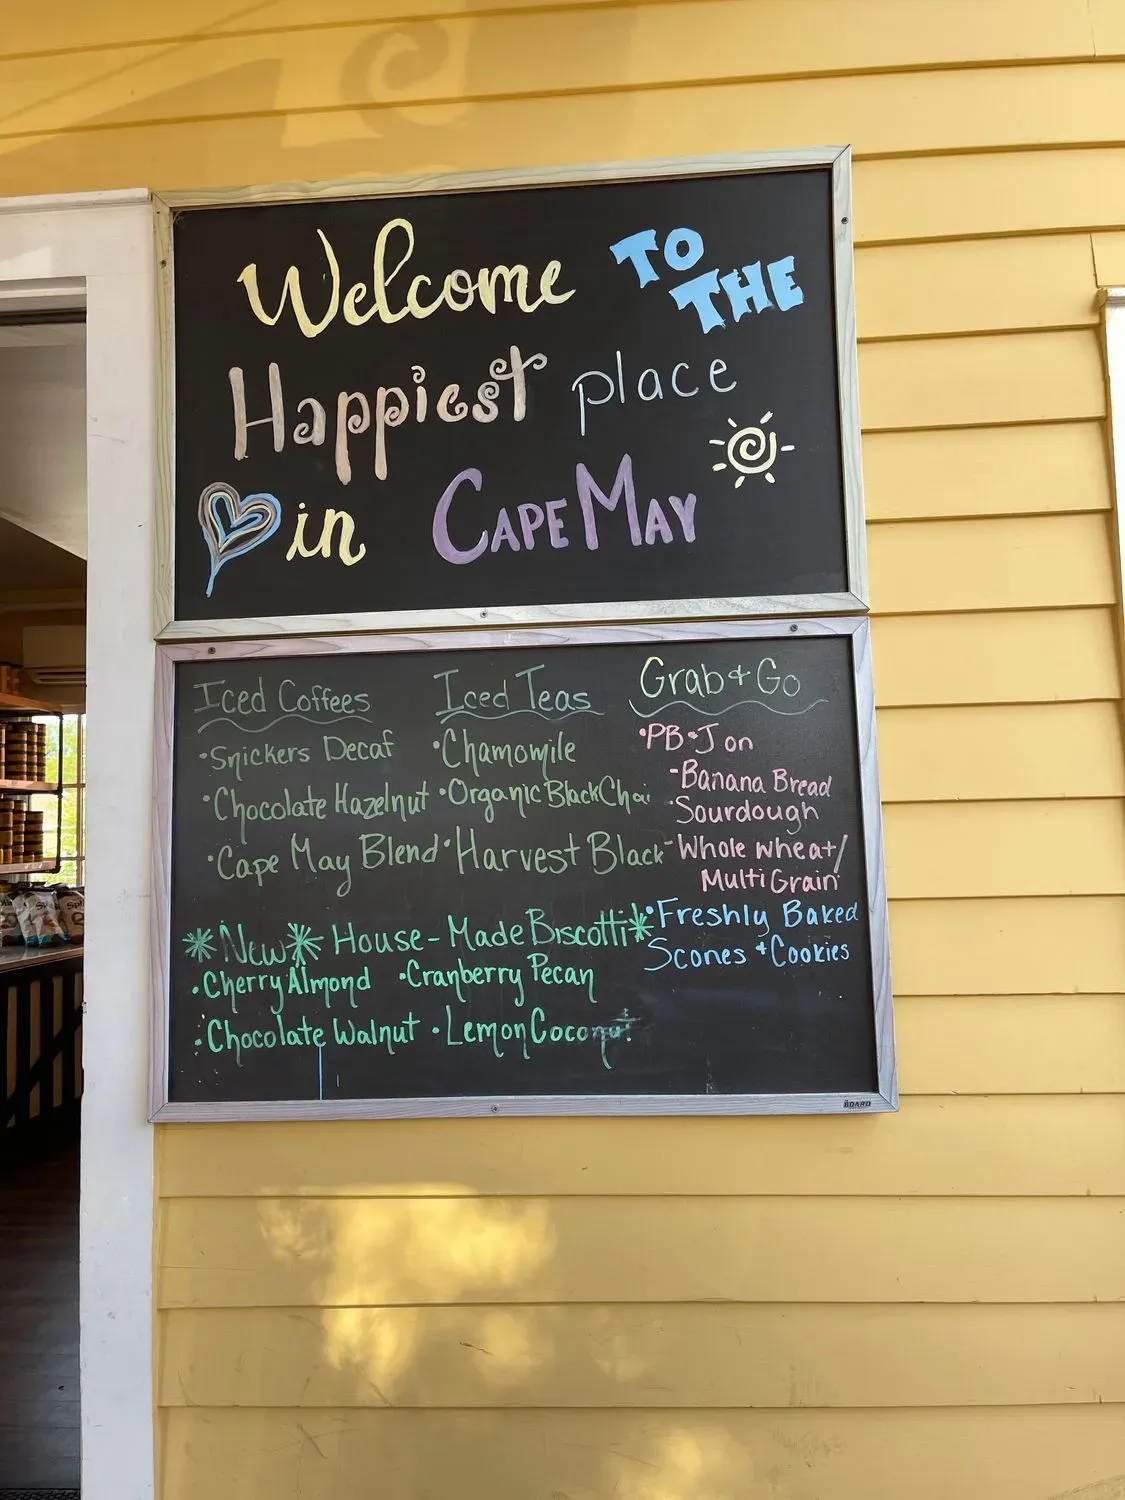 Welcome TO THE
Happiest place
in CAPE MAY
Iced Coffees
•Snickers Decaf
•Chocolate Hazelnut
•Cape May Blend
Iced Teas
•Chamomile
•Organic Black Chai
•Harvest Black
Grab & Go
•PB•J on
-Banana Bread
-Sourdough
-Whole wheat/
Multi Grain
•Freshly Baked
Scones + Cookies
*New* House-Made Biscotti*
•Cherry Almond •Cranberry Pecan
•Chocolate Walnut •Lemon Coconut
BOARD